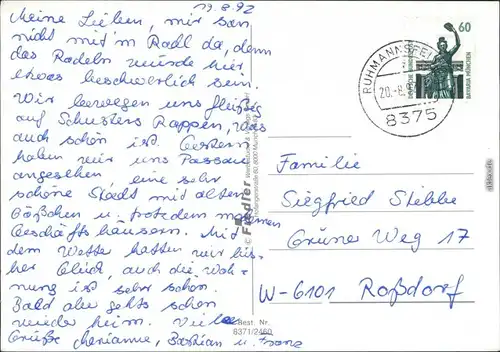 19.8.92
Meine Lieben, mir san
nicht mit'm Radl da, denn
das Radeln würde hier
etwas beschwerlich sein.
Wir bewegen uns fleißig
auf Schusters Rappen, was
auch schön ist. Gestern
haben wir uns Passau
angesehen, eine sehr
schöne Stadt mit alten
Gäßchen u. trotzdem modernen
Geschäftshäusern. Mit
dem Wetter hatten wir bis-
her Glück, auch die Woh-
nung ist sehr schön.
Bald aber gehts schon
wieder heim. Viele
Grüße Marianne, Bastian u. Franz
© Fiedler
8000 München
Best. Nr.
8371/2460
60
DEUTSCHE BUNDESPOST
BAVARIA MÜNCHEN
RUHMANNSFELDEN
20.-8.
8375
Familie
Siegfried Stebbe
Grüner Weg 17
W-6101 Roßdorf